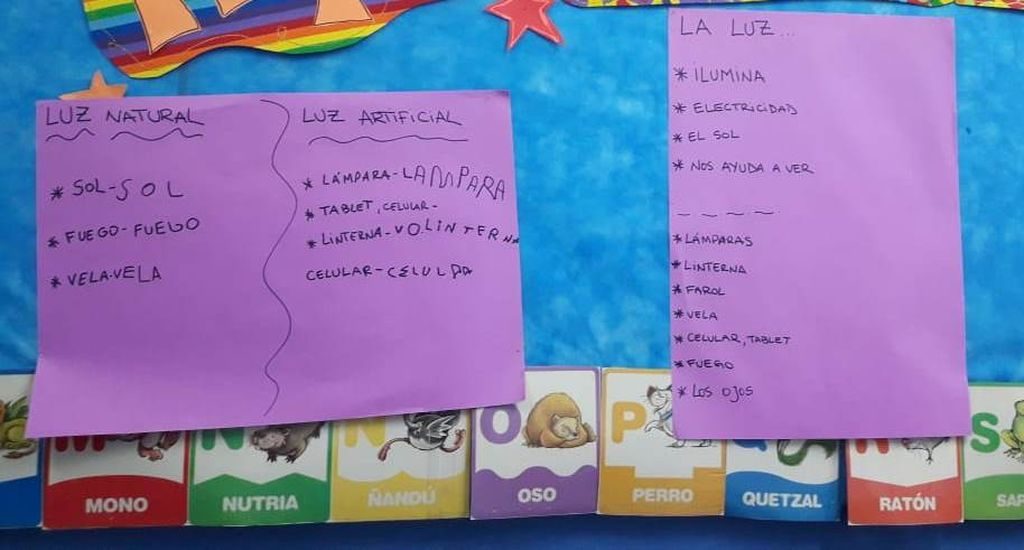 LUZ NATURAL
* SOL-SOL
* FUEGO-FUEGO
* VELA-VELA
LUZ ARTIFICIAL
* LÁMPARA-LAMPARA
* TABLET, CELULAR-
* LINTERNA-VO.LINTERNA
CELULAR-CELULAR
LA LUZ...
* ILUMINA
* ELECTRICIDAD
* EL SOL
* NOS AYUDA A VER
* LÁMPARAS
* LINTERNA
* FAROL
* VELA
* CELULAR, TABLET
* FUEGO
* LOS OJOS
M N Ñ O P Q R S
MONO NUTRIA ÑANDÚ OSO PERRO QUETZAL RATÓN SAP